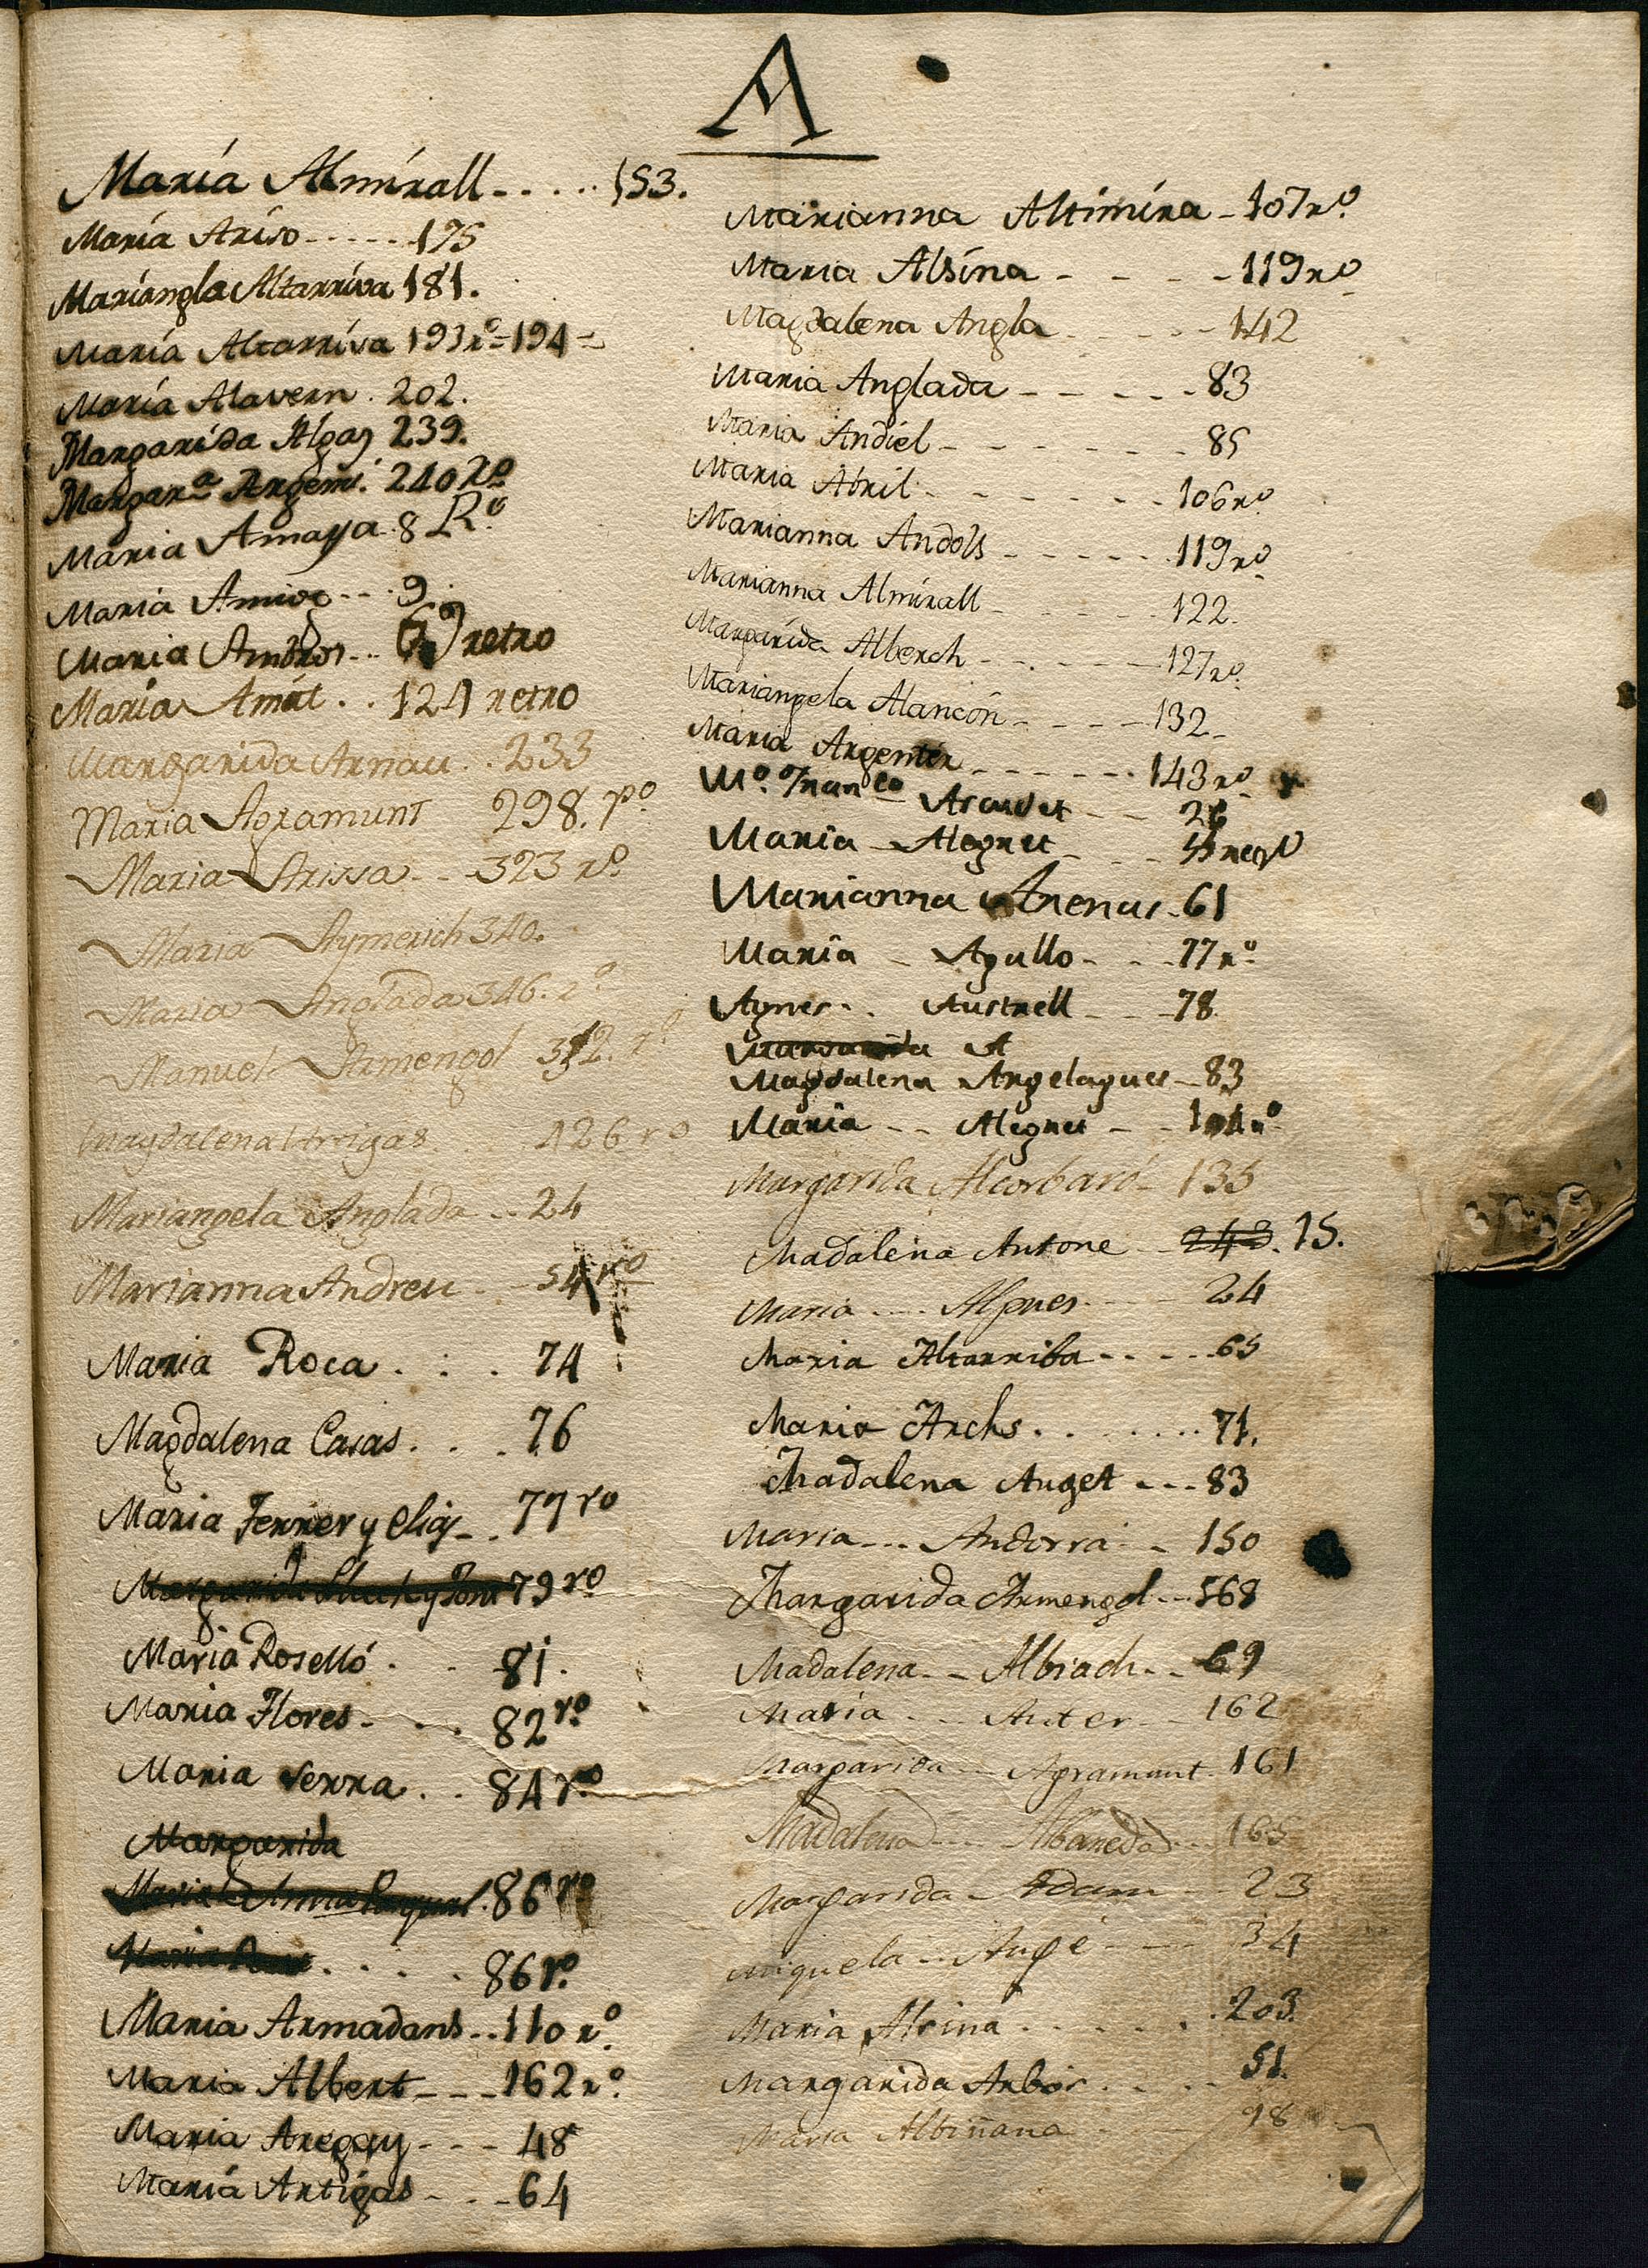 A
María Almírall - . . . . 153.
María Aríso - - - - - 175
Maríangla Altarríva 181.
María Altarríva 193rº = 194 =
María Alavern . 202.
Margarída Algay 239.
Margarª Argemí. 240 Rº
Maria Amaya 8 Rº
Maria Amigo - - . 9.
Maria Ambros - . retro
María Amát . . 124 retro
Margarida Arnau . . 233
Maria Agramunt 298. rº
Maria Arissa - - 323 rº
Maria Aymerich 340.
Maria Anglada 346. rº
Manuel Armengol 312. rº
Magdalena Arrigas . . 426 rº
Mariangela Anglada . . 24
Marianna Andreu . - 54 rº
Maria Roca . . . 74
Magdalena Casas . . . 76
Maria Ferrer y Elias - . 77 rº
Margarida 79 rº
Maria Roselló . . 81.
Maria Flores - . . . 82 rº
Maria Serra . . . 84 rº
Margarida
86 rº
. . . . . 86 rº
Maria Armadans . . 110 rº
Maria Albert - - - 162 rº
Maria Aregay - - - 48
Maria Artigas - . - 64
Marianna Altimíra - 107rº
Maria Alsína - - - - 119rº
Magdalena Angla - - - - 142
Maria Anglada - - - - - 83
Maria Andiel - - - - - - - 85
Maria Abril - - - - - - 106rº
Marianna Andols - - - - - 119rº
Marianna Almírall - - - - - 122.
Margarida Alberch - - - - - - 127rº
Mariangela Alancón - - - - 132 -
Maria Argentér - - - - - - 143rº
Mª. Franᶜᵃ Araudet - - 26
Maria - Alegret - - -
Marianna Arenas - 61
Maria - Agullo - - - 77rº
Agnes - . Austrell - - - 78
Margarida A
Magdalena Argelagues - 83
Maria - - Alegret - - 104rº
Margarida Alcorbaró - 135
Madalena Antone - - 243. 15.
Maria - - - Alpues - - - - 24
Maria Altarriba - - - - 65
Maria Archs . . . . . . . 71.
Madalena Auget - - - 83
Maria - - - Andorra - - 150
Margarida Armengol - - 568
Madalena - - Albiach - - 69
Maria - - - Anter - - 162
Margarida - - Agramunt . 161
Madalena - - - Albareda - - 165
Margarida - Adam - - - 23
Miquela - - Augé - - - - 34
Maria Alsina . . . . . . 203.
Margarida Arbós . . . . 51.
Maria Albiñana - - - - 98